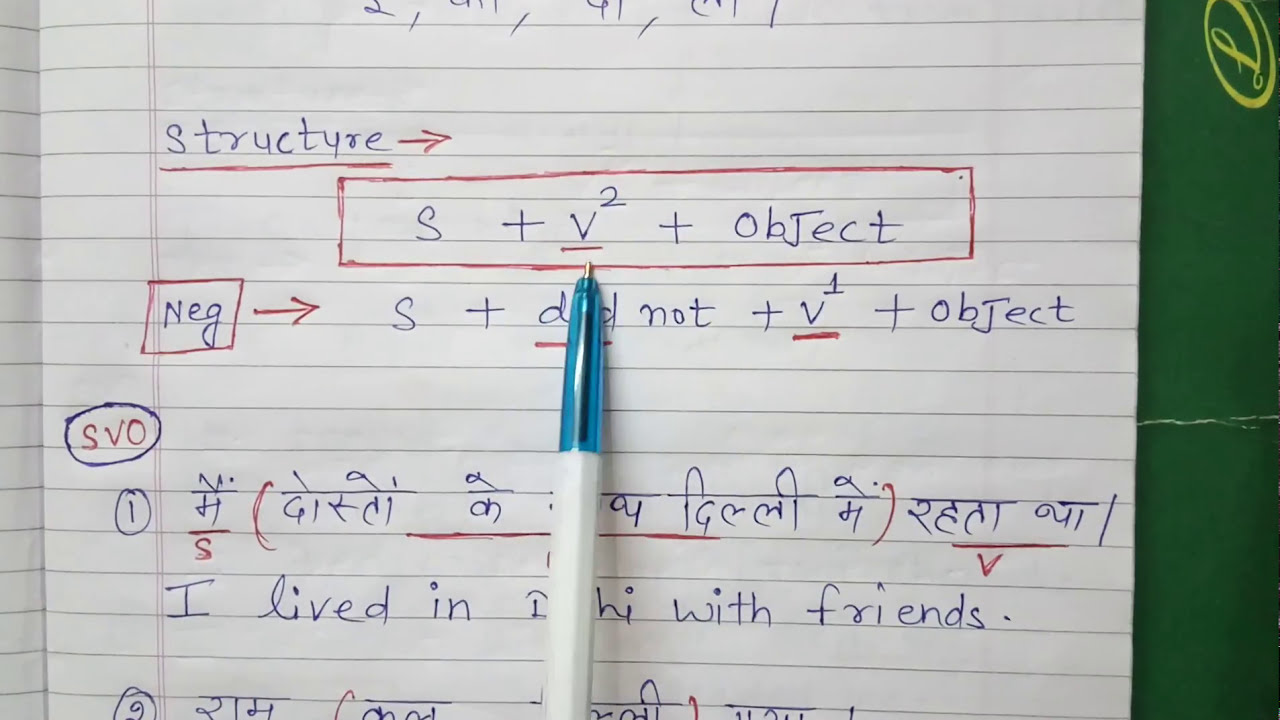 Structure →
S + V² + Object
Neg → S + did not + V¹ + Object
SVO
① मैं (दोस्तों के साथ दिल्ली में) रहता था।
S V
I lived in Delhi with friends.
② राम (कल दिल्ली) गया।